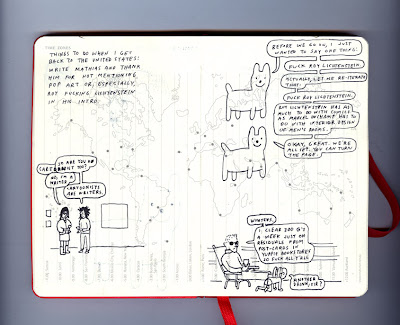 THINGS TO DO WHEN I GET
BACK TO THE UNITED STATES:
WRITE MATHIAS AND THANK
HIM FOR NOT MENTIONING
POP ART OR, ESPECIALLY,
ROY FUCKING LICHTENSTEIN
IN HIS INTRO.
SO ARE YOU A
CARTOONIST TOO?
NO, I'M A
WRITER.
CARTOONISTS
ARE WRITERS.
BEFORE WE GO ON, I JUST
WANTED TO SAY ONE THING.
FUCK ROY LICHTENSTEIN.
ACTUALLY, LET ME RE-ITERATE
THAT:
FUCK ROY LICHTENSTEIN.
ROY LICHTENSTEIN HAS AS
MUCH TO DO WITH COMICS
AS MARCEL DUCHAMP HAS TO
DO WITH INTERIOR DESIGN
OF MEN'S ROOMS.
OKAY, GREAT. WE'RE
ALL SET. YOU CAN TURN
THE PAGE.
WHATEVER.
I CLEAR 200 G'S
A WEEK JUST ON
RESIDUALS FROM
POST-CARDS IN
YUPPIE BOOKSTORES
SO FUCK ALL Y'ALL
ANOTHER
DRINK, SIR?